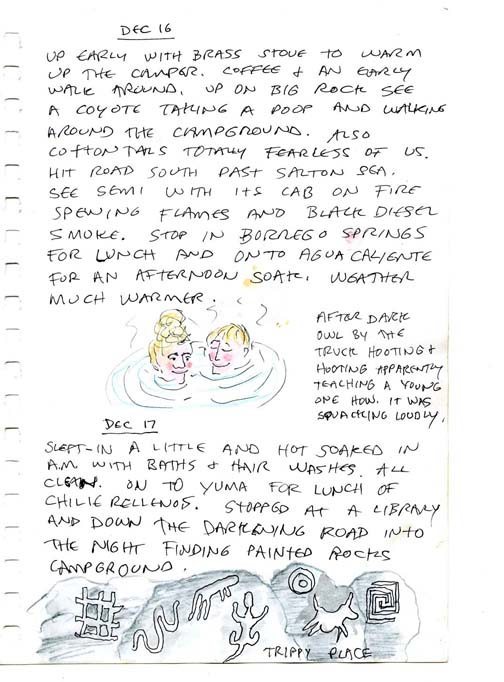 DEC 16
UP EARLY WITH BRASS STOVE TO WARM
UP THE CAMPER. COFFEE & AN EARLY
WALK AROUND. UP ON BIG ROCK SEE
A COYOTE TAKING A POOP AND WALKING
AROUND THE CAMPGROUND. ALSO
COTTONTAILS TOTALLY FEARLESS OF US.
HIT ROAD SOUTH PAST SALTON SEA.
SEE SEMI WITH ITS CAB ON FIRE
SPEWING FLAMES AND BLACK DIESEL
SMOKE. STOP IN BORREGO SPRINGS
FOR LUNCH AND ON TO AGUA CALIENTE
FOR AN AFTERNOON SOAK. WEATHER
MUCH WARMER.
AFTER DARK
OWL BY THE
TRUCK HOOTING &
HOOTING APPARENTLY
TEACHING A YOUNG
ONE HOW. IT WAS
SQUACKING LOUDLY.
DEC 17
SLEPT-IN A LITTLE AND HOT SOAKED IN
A.M WITH BATHS & HAIR WASHES. ALL
CLEAN. ON TO YUMA FOR LUNCH OF
CHILIE RELLENOS. STOPPED AT A LIBRARY
AND DOWN THE DARKENING ROAD INTO
THE NIGHT FINDING PAINTED ROCKS
CAMPGROUND.
TRIPPY PLACE